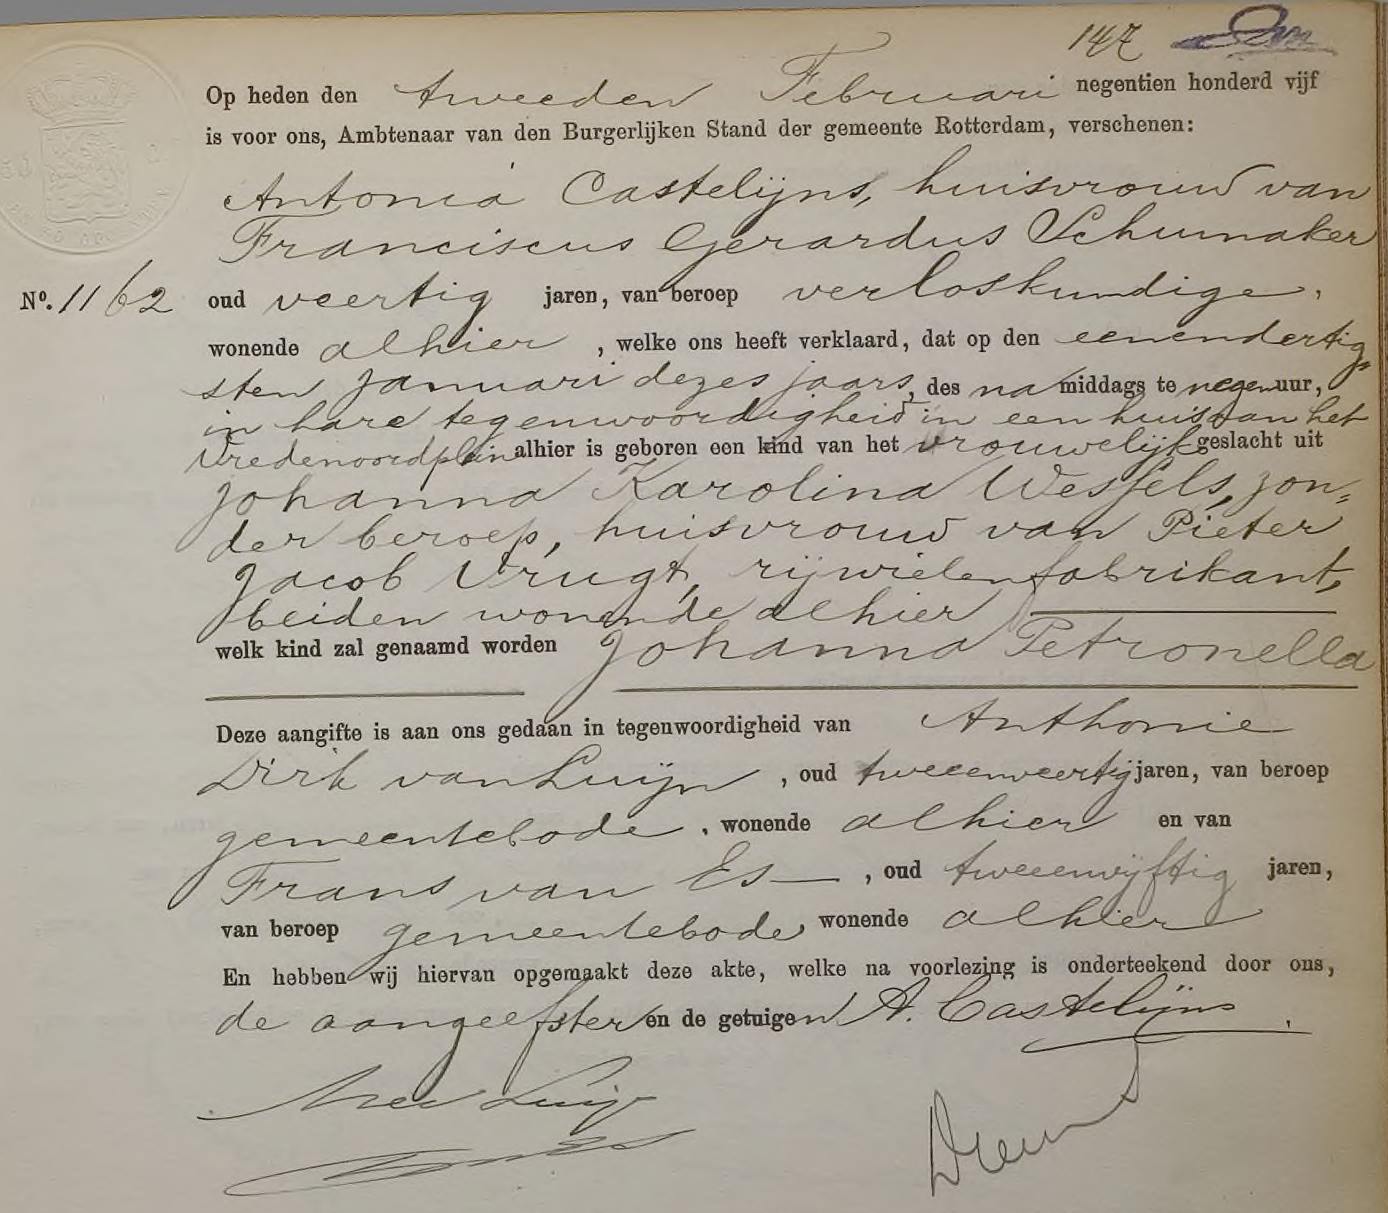 147
Op heden den tweeden Februari negentien honderd vijf
is voor ons, Ambtenaar van den Burgerlijken Stand der gemeente Rotterdam, verschenen:
Antonia Castelijns, huisvrouw van
Franciscus Gerardus Schumaker
No. 1162 oud veertig jaren, van beroep verloskundige,
wonende alhier, welke ons heeft verklaard, dat op den eenendertig-
sten Januari dezes jaars, des na middags te negen uur,
in hare tegenwoordigheid in een huis aan het
Vredenoordplein alhier is geboren een kind van het vrouwelijk geslacht uit
Johanna Karolina Wessels, zon-
der beroep, huisvrouw van Pieter
Jacob Vrugt, rijwielenfabrikant,
beiden wonende alhier
welk kind zal genaamd worden Johanna Petronella
Deze aangifte is aan ons gedaan in tegenwoordigheid van Anthonie
Dirk van Luijn, oud tweeenveertig jaren, van beroep
gemeentebode, wonende alhier en van
Frans van Es, oud tweeenvijftig jaren,
van beroep gemeentebode, wonende alhier
En hebben wij hiervan opgemaakt deze akte, welke na voorlezing is onderteekend door ons,
de aangeefster en de getuigen A. Castelijns